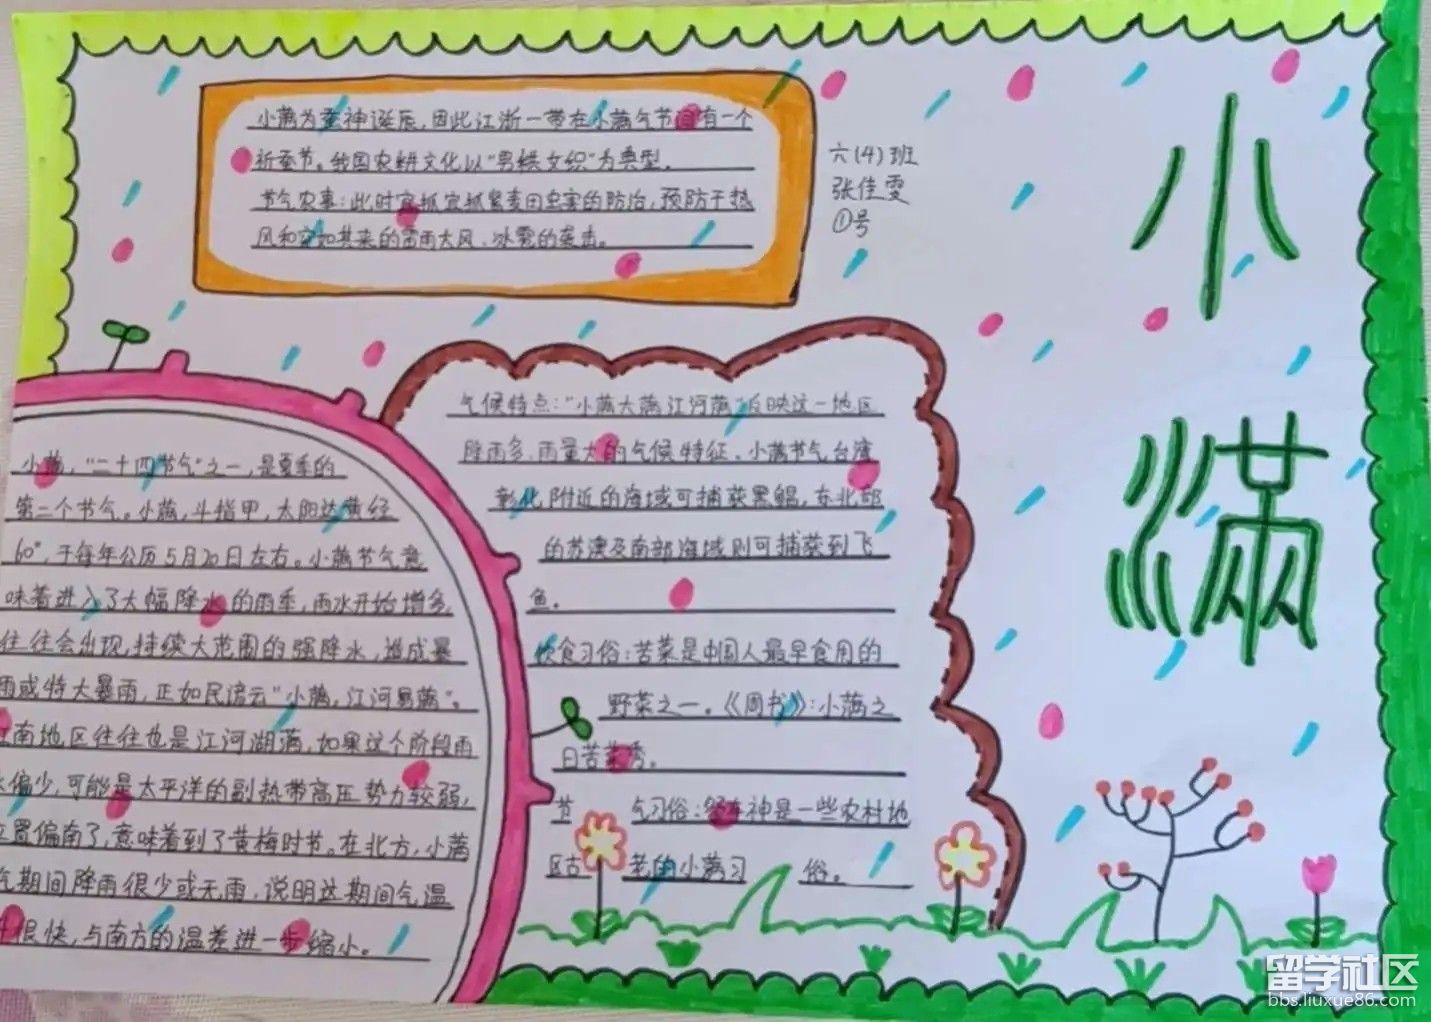 小满
六(4)班
张佳雯
①号
小满为蚕神诞辰,因此江浙一带在小满气节间有一个
祈蚕节。我国农耕文化以“男耕女织”为典型。
节气农事:此时宜抓宜抓紧麦田虫害的防治,预防干热
风和突如其来的雷雨大风、冰雹的袭击。
小满,“二十四节气”之一,是夏季的
第二个节气。小满,斗指甲,太阳达黄经
60°,于每年公历5月20日左右。小满节气意
味着进入了大幅降水的雨季,雨水开始增多
往往会出现,持续大范围的强降水,造成暴
雨或特大暴雨,正如民谚云“小满,江河易满”。
南地区往往也是江河湖满,如果这个阶段雨
偏少,可能是太平洋的副热带高压势力较弱,
位置偏南了,意味着到了黄梅时节。在北方,小满
气期间降雨很少或无雨,说明这期间气温
升很快,与南方的温差进一步缩小。
气候特点:“小满大满江河满”反映这一地区
降雨多、雨量大的气候特征。小满节气台湾
彰化附近的海域可捕获黑鲳,东北部
的苏澳及南部海域则可捕获到飞
鱼。
饮食习俗:苦菜是中国人最早食用的
野菜之一。《周书》:小满之
日苦菜秀。
节气习俗:祭车神是一些农村地
区古老的小满习俗。
留学社区
bbs.liuxue86.com